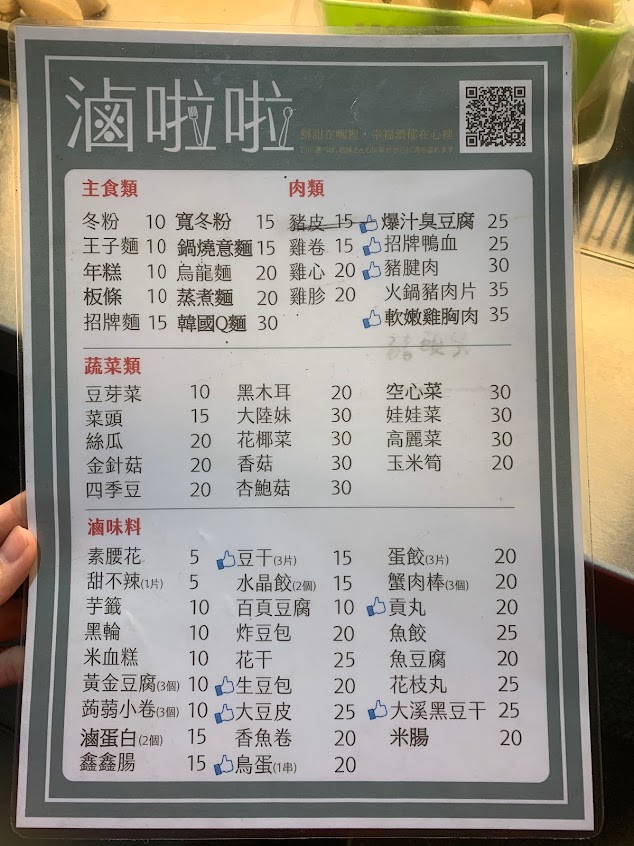 滷啦啦
鮮甜在嘴裡，幸福濃郁在心裡
主食類 肉類
冬粉 10 寬冬粉 15 豬皮 15 爆汁臭豆腐 25
王子麵 10 鍋燒意麵 15 雞卷 15 招牌鴨血 25
年糕 10 烏龍麵 20 雞心 20 豬腱肉 30
板條 10 蒸煮麵 20 雞胗 20 火鍋豬肉片 35
招牌麵 15 韓國Q麵 30 軟嫩雞胸肉 35
蔬菜類
豆芽菜 10 黑木耳 20 空心菜 30
菜頭 15 大陸妹 30 娃娃菜 30
絲瓜 20 花椰菜 30 高麗菜 30
金針菇 20 香菇 30 玉米筍 20
四季豆 20 杏鮑菇 30
滷味料
素腰花 5 豆干(3片) 15 蛋餃(3片) 20
甜不辣(1片) 5 水晶餃(2個) 15 蟹肉棒(3個) 20
芋籤 10 百頁豆腐 10 貢丸 20
黑輪 10 炸豆包 20 魚餃 25
米血糕 10 花干 25 魚豆腐 20
黃金豆腐(3個) 10 生豆包 20 花枝丸 25
蒟蒻小卷(3個) 10 大豆皮 25 大溪黑豆干 25
滷蛋白(2個) 15 香魚卷 20 米腸 20
鑫鑫腸 15 鳥蛋(1串) 20